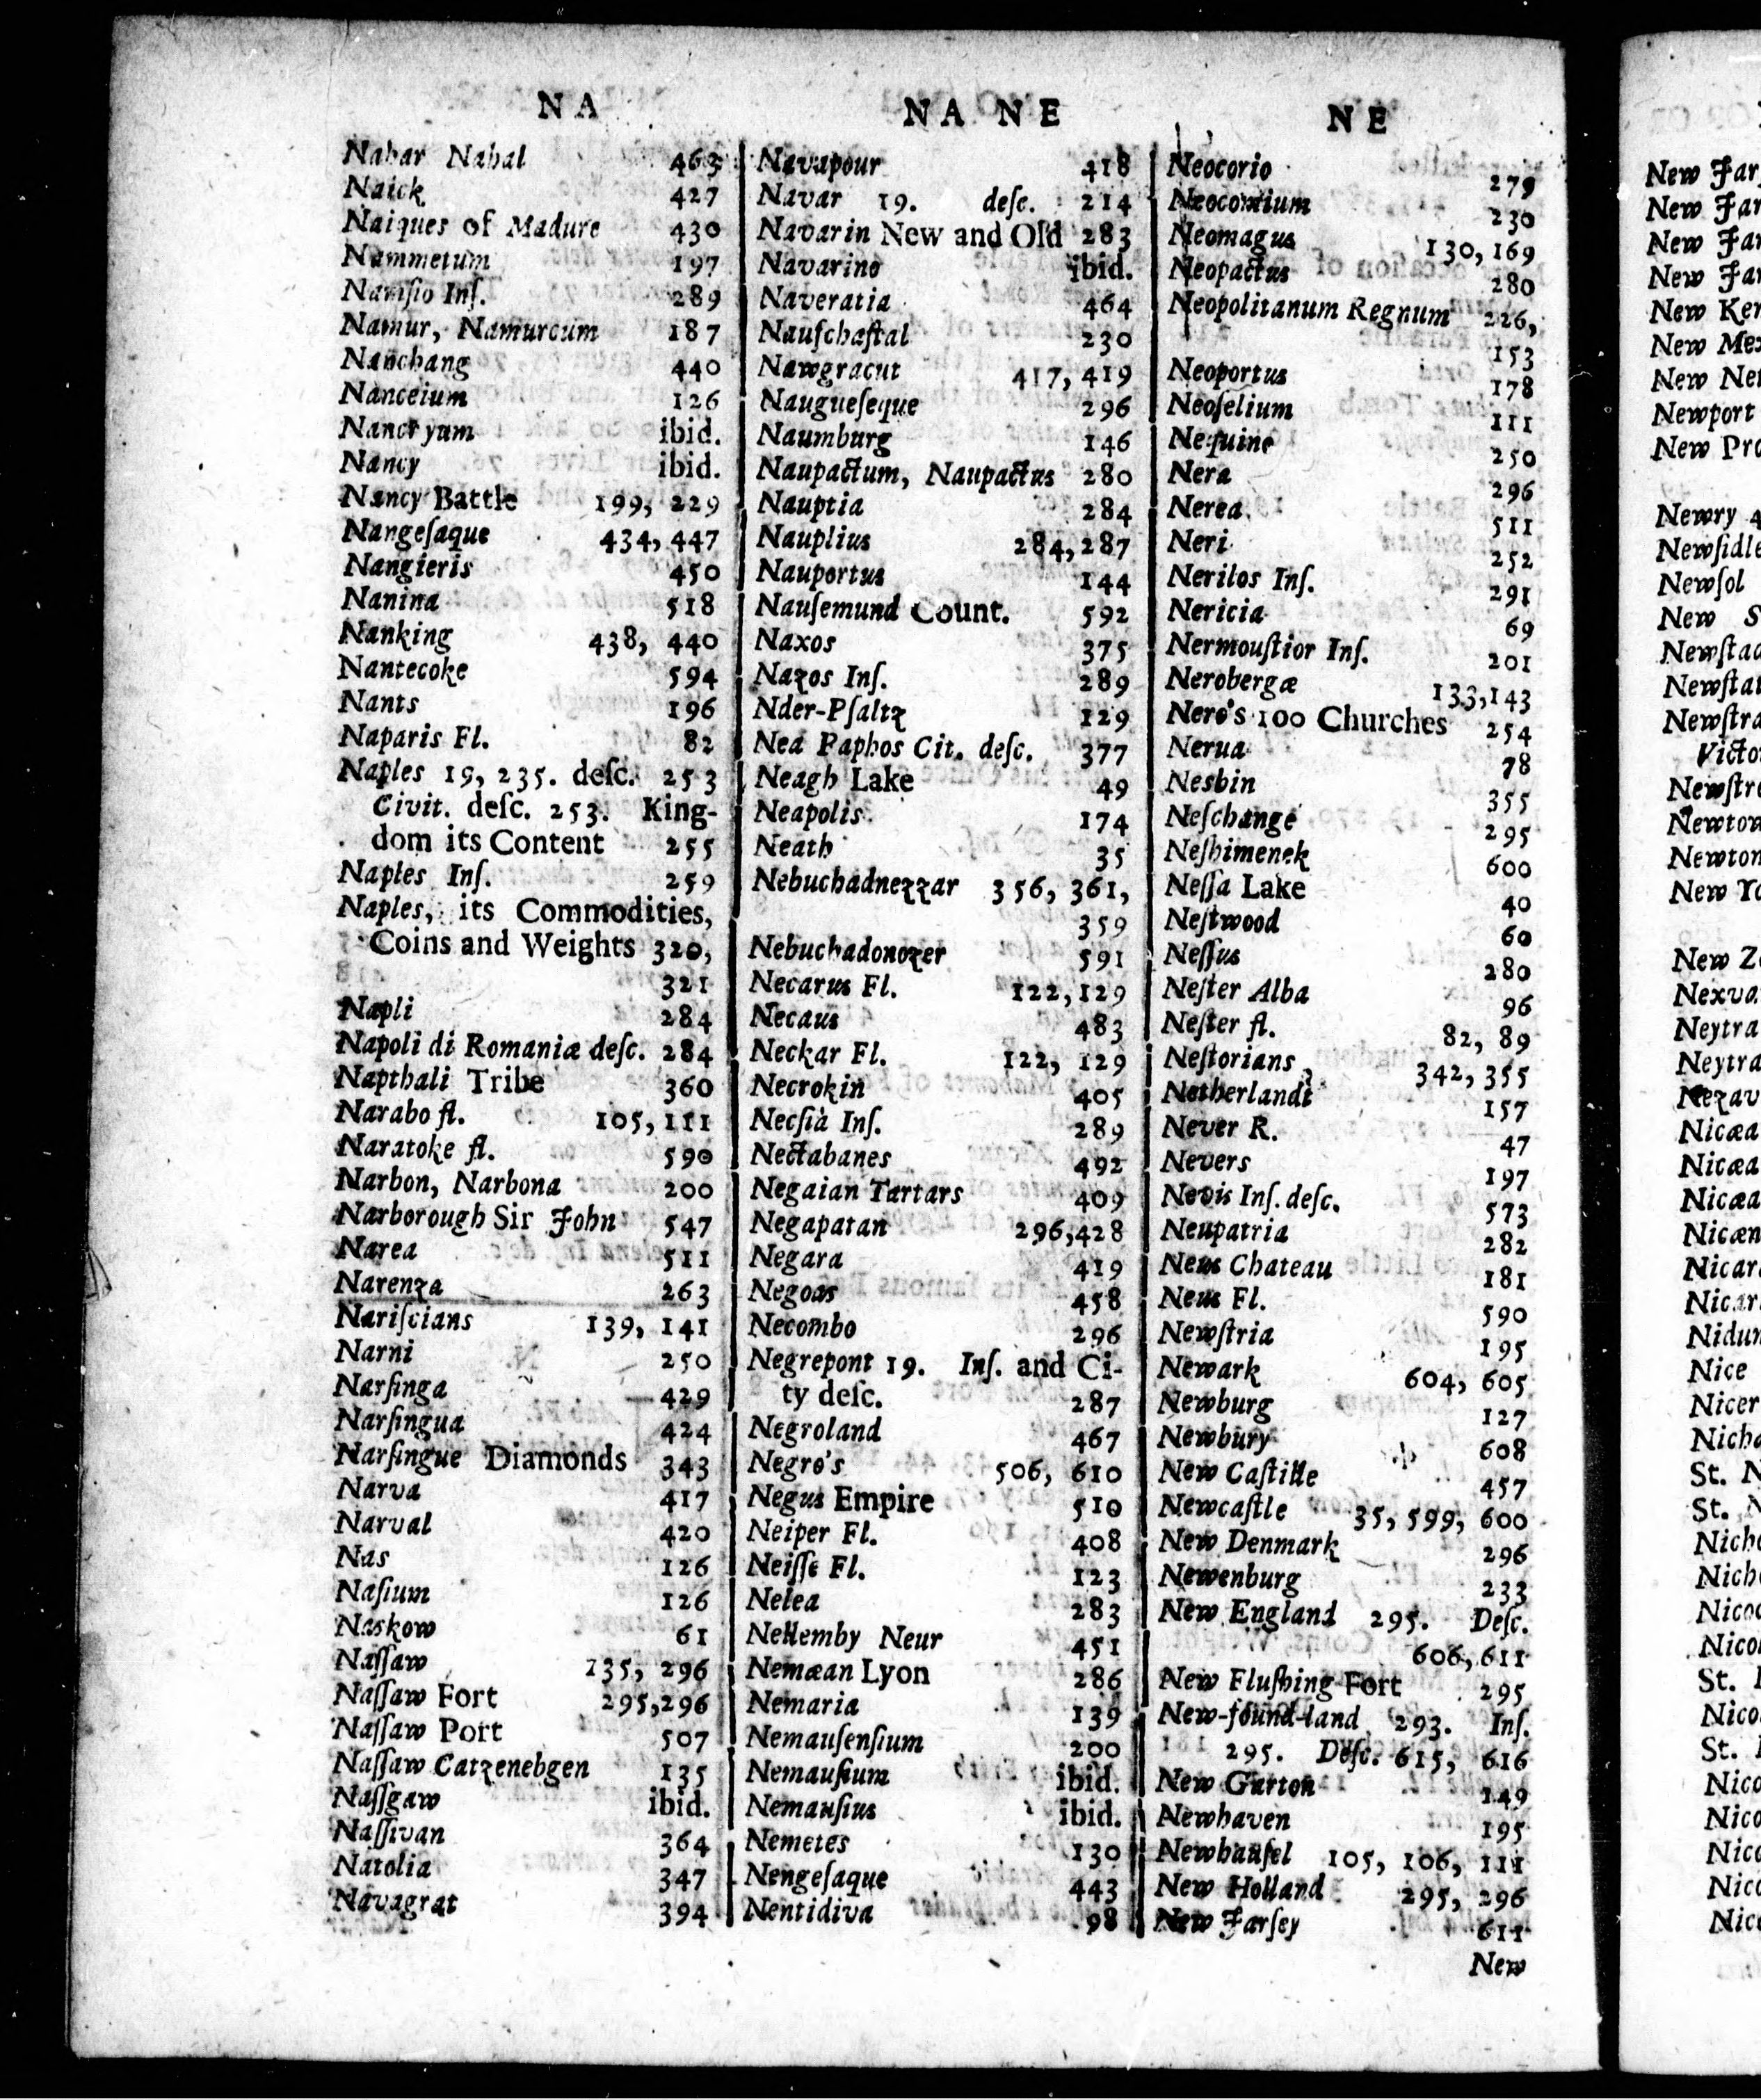 N A
Nahar Nahal 463
Naick 427
Naiques of Madure 430
Nammetum 197
Namsio Inſ. 289
Namur, Namurcum 187
Nanchang 440
Nanceium 126
Nancryum ibid.
Nancy ibid.
Nancy Battle 199, 229
Nangeſaque 434, 447
Nangieris 450
Nanina 518
Nanking 438, 440
Nantecoke 594
Nants 196
Naparis Fl. 82
Naples 19, 235. deſc. 253
Civit. deſc. 253. King-
dom its Content 255
Naples Inſ. 259
Naples, its Commodities,
Coins and Weights 320,
321
Napli 284
Napoli di Romaniæ deſc. 284
Napthali Tribe 360
Narabo fl. 105, 111
Naratoke fl. 590
Narbon, Narbona 200
Narborough Sir John 547
Narea 511
Narenza 263
Nariſcians 139, 141
Narni 250
Narſinga 429
Narſingua 424
Narſingue Diamonds 343
Narva 417
Narval 420
Nas 126
Naſium 126
Naskow 61
Naſſaw 135, 296
Naſſaw Fort 295,296
Naſſaw Port 507
Naſſaw Catzenebgen 135
Naſſgaw ibid.
Naſſivan 364
Natolia 347
Navagrat 394
N A N E
Navapour 418
Navar 19. deſc. 214
Navarin New and Old 283
Navarino ibid.
Naveratia 464
Naufchaſtal 230
Nawgracut 417, 419
Naugueſeque 296
Naumburg 146
Naupactum, Naupactus 280
Nauptia 284
Nauplius 284,287
Nauportus 144
Nauſemund Count. 592
Naxos 375
Nazos Inſ. 289
Nder-Pſaltz 129
Nea Paphos Cit. deſc. 377
Neagh Lake 49
Neapolis 174
Neath 35
Nebuchadnezzar 356, 361,
359
Nebuchadonozer 591
Necarus Fl. 122,129
Necaus 483
Neckar Fl. 122, 129
Necrokin 405
Necſia Inſ. 289
Nectabanes 492
Negaian Tartars 409
Negapatan 296,428
Negara 419
Negoas 458
Necombo 296
Negrepont 19. Inſ. and Ci-
ty deſc. 287
Negroland 467
Negro's 506, 610
Negus Empire 510
Neiper Fl. 408
Neiſſe Fl. 123
Nelea 283
Nellemby Neur 451
Nemæan Lyon 286
Nemaria 139
Nemauſenſium 200
Nemauſium ibid.
Nemauſius ibid.
Nemetes 130
Nengeſaque 443
Nentidiva 98
N E
Neocorio 279
Neocomium 230
Neomagus 130,169
Neopactus 280
Neopolitanum Regnum 226,
153
Neoportus 178
Neoſelium 111
Nequine 250
Nera 296
Nerea 511
Neri 252
Nerilos Inſ. 291
Nericia 69
Nermouſtior Inſ. 201
Nerobergæ 133,143
Nero's 100 Churches 254
Nerua 78
Nesbin 355
Neſchange 295
Neſhimenek 600
Neſſa Lake 40
Neſtwood 60
Neſſus 280
Neſter Alba 96
Neſter fl. 82, 89
Neſtorians 342, 355
Netherlands 157
Never R. 47
Nevers 197
Nevis Inſ. deſc. 573
Neupatria 282
Neus Chateau 181
Neus Fl. 590
Newſtria 195
Newark 604, 605
Newburg 127
Newbury 608
New Caſtille 457
Newcaſtle 35, 599, 600
New Denmark 296
Newenburg 233
New England 295. Deſc.
606,611
New Fluſhing Fort 295
New-found-land 293. Inſ.
295. Deſc. 615, 616
New Garton 149
Newhaven 195
Newhauſel 105, 106, 111
New Holland 295, 296
New Jarſey 611
New
New Jar
New Jar
New Jar
New Jar
New Ker
New Mex
New Net
Newport
New Pro
Newry 4
Newſidle
Newſol
New S
Newſtad
Newſtat
Newſtra
Victo
Newſtre
Newtow
Newton
New Yo
New Ze
Nexva
Neytra
Neytra
Nezav
Nicæa
Nicæa
Nicæa
Nicæn
Nicar
Nicar
Nidun
Nice
Nicer
Nicha
St. N
St. N
Nicho
Nich
Nicoc
Nico
St.
Nico
St.
Nico
Nico
Nico
Nico
Nic